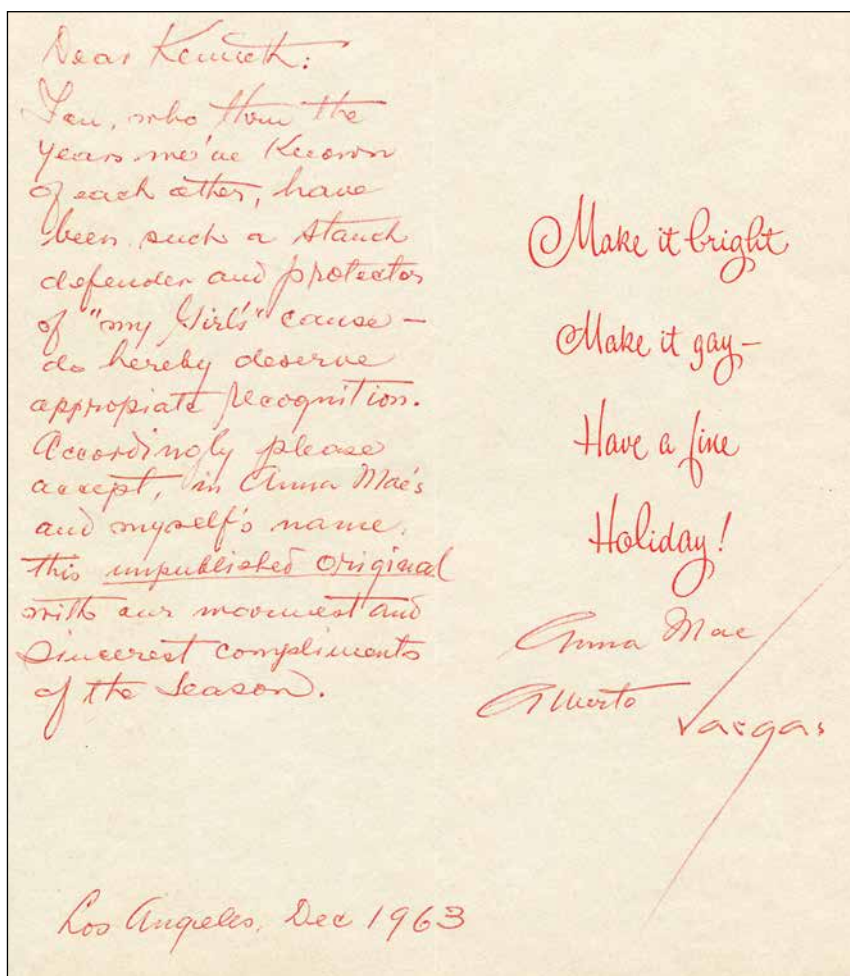 Dear Kenneth:
You, who thru the
years we've known
of each other, have
been such a stauch
defender and protector
of "my Girl's" cause —
do hereby deserve
appropiate recognition.
Accordingly please
accept, in Anna Mae's
and myself's name,
this unpublished original
with our warmest and
Sincerest compliments
of the Season.
Los Angeles, Dec 1963
Make it bright
Make it gay—
Have a fine
Holiday!
Anna Mae
Alberto
Vargas